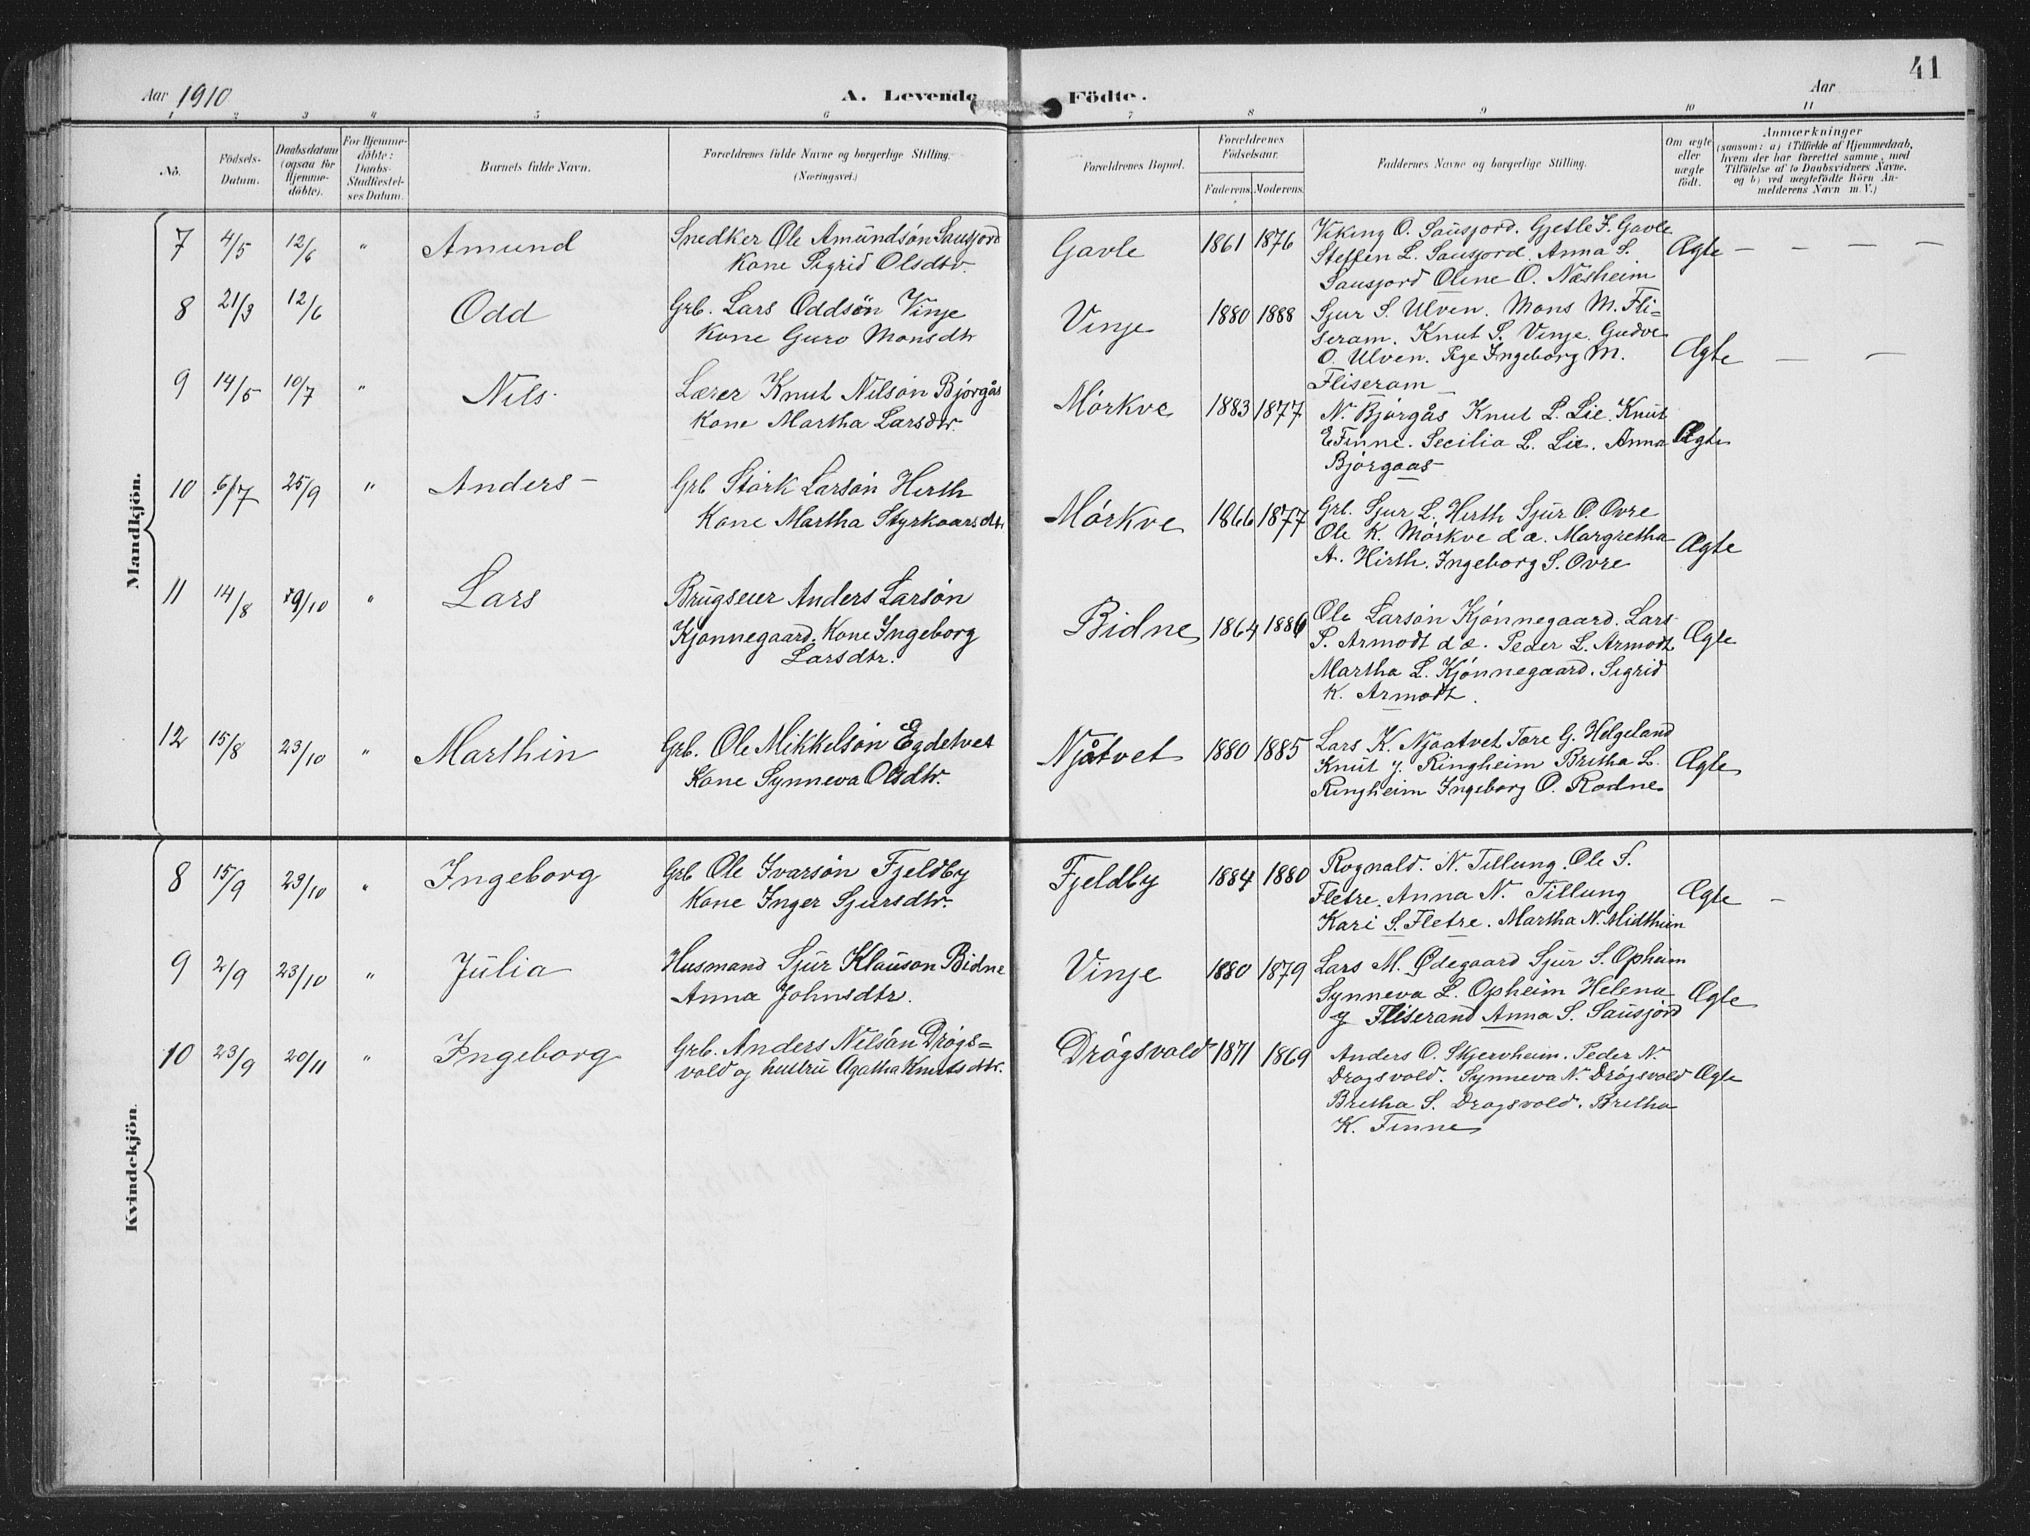 41
Aar 1910
A. Levende Födte.
Aar
1 2 3 4 5 6 7 8 9 10 11
No.
Födsels-
Datum.
Daabsdatum
(ogsaa for
Hjemme-
döbte).
For Hjemme-
döbte:
Daabs-
Stadfæstel-
ses Datum.
Barnets fulde Navn.
Forældrenes fulde Navne og borgerlige Stilling.
(Næringsvei.)
Forældrenes Bopæl.
Forældrenes
Födselsaar.
Faderens. Moderens.
Faddernes Navne og borgerlige Stilling.
Om ægte
eller
uægte
födt.
Anmærkninger
(saasom: a) i Tilfælde af Hjemmedaab,
hvem der har forrettet samme, med
Tilföielse af to Daabsvidners Navne,
og b) ved uægtefödte Börn An-
melderens Navn m. V.)
Mandkjön.
7 4/5 12/6 " Amund
Snedker Ole Amundsøn Sausjord
Kone Sigrid Olsdtr.
Gavle 1861 1876
Viking O. Sausjord. Gjetle I. Gavle
Steffen L. Sausjord. Anna S.
Sausjord Oline O. Næsheim
Ægte — — — —
8 21/3 12/6 Odd
Grb. Lars Oddsøn Vinje
Kone Guro Monsdtr
Vinje 1880 1888
Sjur S. Ulven. Mons M. Fli-
seram. Knut S. Vinje. Gudve
O. Ulven. Pige Ingeborg M.
Fliseram
Ægte — —
9 14/5 10/7 " Nils.
Lærer Knut Nilsøn Bjørgås
Kone Martha Larsdtr.
Mørkve 1883 1877
N. Bjørgås Knut L. Lie. Knut
E Finne. Secilia L. Lie. Anna
Bjørgaas
Ægte
10 6/7 25/9 " Anders —
Grb Størk Larsøn Hirth
Kone Martha Styrkaarsdtr.
Mørkve 1866 1877
Grb. Sjur L. Hirth Sjur O. Ovre
Ole K. Mørkve d.æ. Margretha
A. Hirth. Ingeborg S. Ovre
Ægte
11 14/8 9/10 " Lars
Brugseier Anders Larsøn
Kjønnegaard. Kone Ingeborg
Larsdtr.
Bidne 1864 1886
Ole Larsøn Kjønnegaard. Lars
P. Armodt d.æ. Peder L. Armodt
Martha L. Kjønnegaard. Sigrid
K. Armodt.
Ægte
12 15/8 23/10 " Marthin
Grb. Ole Mikkelsøn Egdetvet
Kone Synneva Olsdtr.
Njåtvet 1880 1885
Lars K. Njaatvet Tore G. Helgeland
Knut J. Ringheim Britha L.
Ringheim Ingeborg O. Rodne
Ægte
Kvindekjön.
8 15/9 23/10 " Ingeborg
Grb Ole Ivarsøn Fjeldby
Kone Inger Sjursdtr.
Fjeldby 1884 1880
Rognald. N. Tillung. Ole S.
Fletre. Anna N. Tillung
Kari S. Fletre. Martha N. Midthun
Ægte —
9 2/9 23/10 " Julia
Husmand Sjur Klauson Bidne
Anna Johnsdtr.
Vinje 1880 1879
Lars M. Ødegaard Sjur S. Opheim
Synneva L. Opheim Helena
J Fliserand Anna S. Sausjord
Ægte
10 23/9 20/11 " Ingeborg
Grb. Anders Nilsøn Drøgs=
vold og hustru Agatha Knutsdtr.
Drøgsvold 1871 1869
Anders O. Skjervheim. Peder N.
Drøgsvold. Synneva N. Drøgsvold
Britha S. Drøgsvold. Britha
K. Finne
Ægte